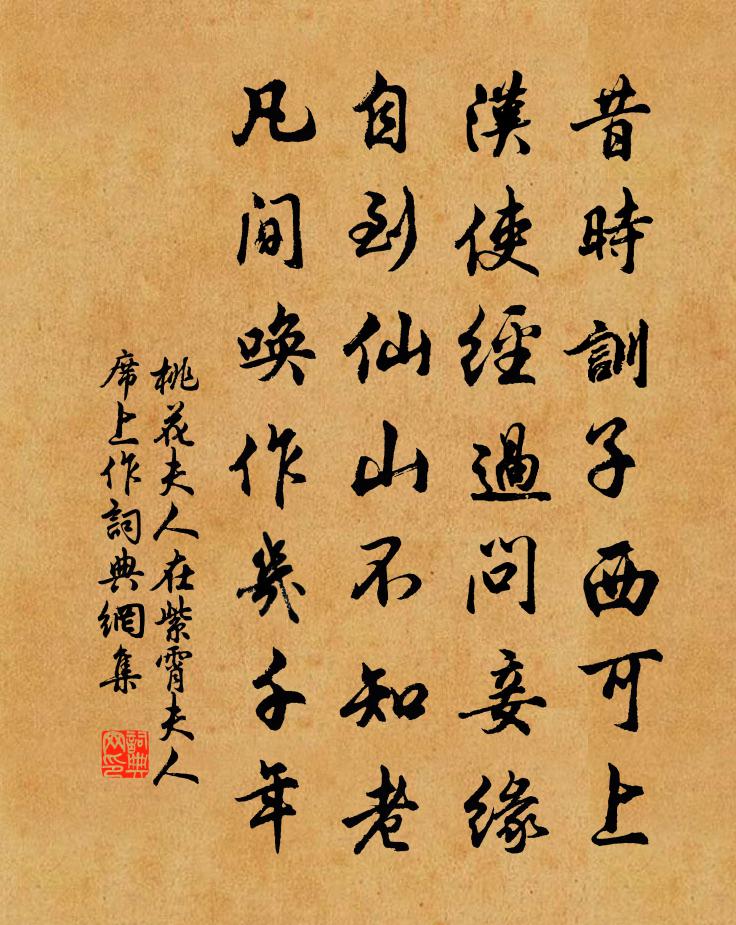 昔時訓子西河上
漢使經過問妾緣
自到仙山不知老
凡間喚作幾千年
桃花夫人在紫霄夫人
席上作詞典網集
詞典網印